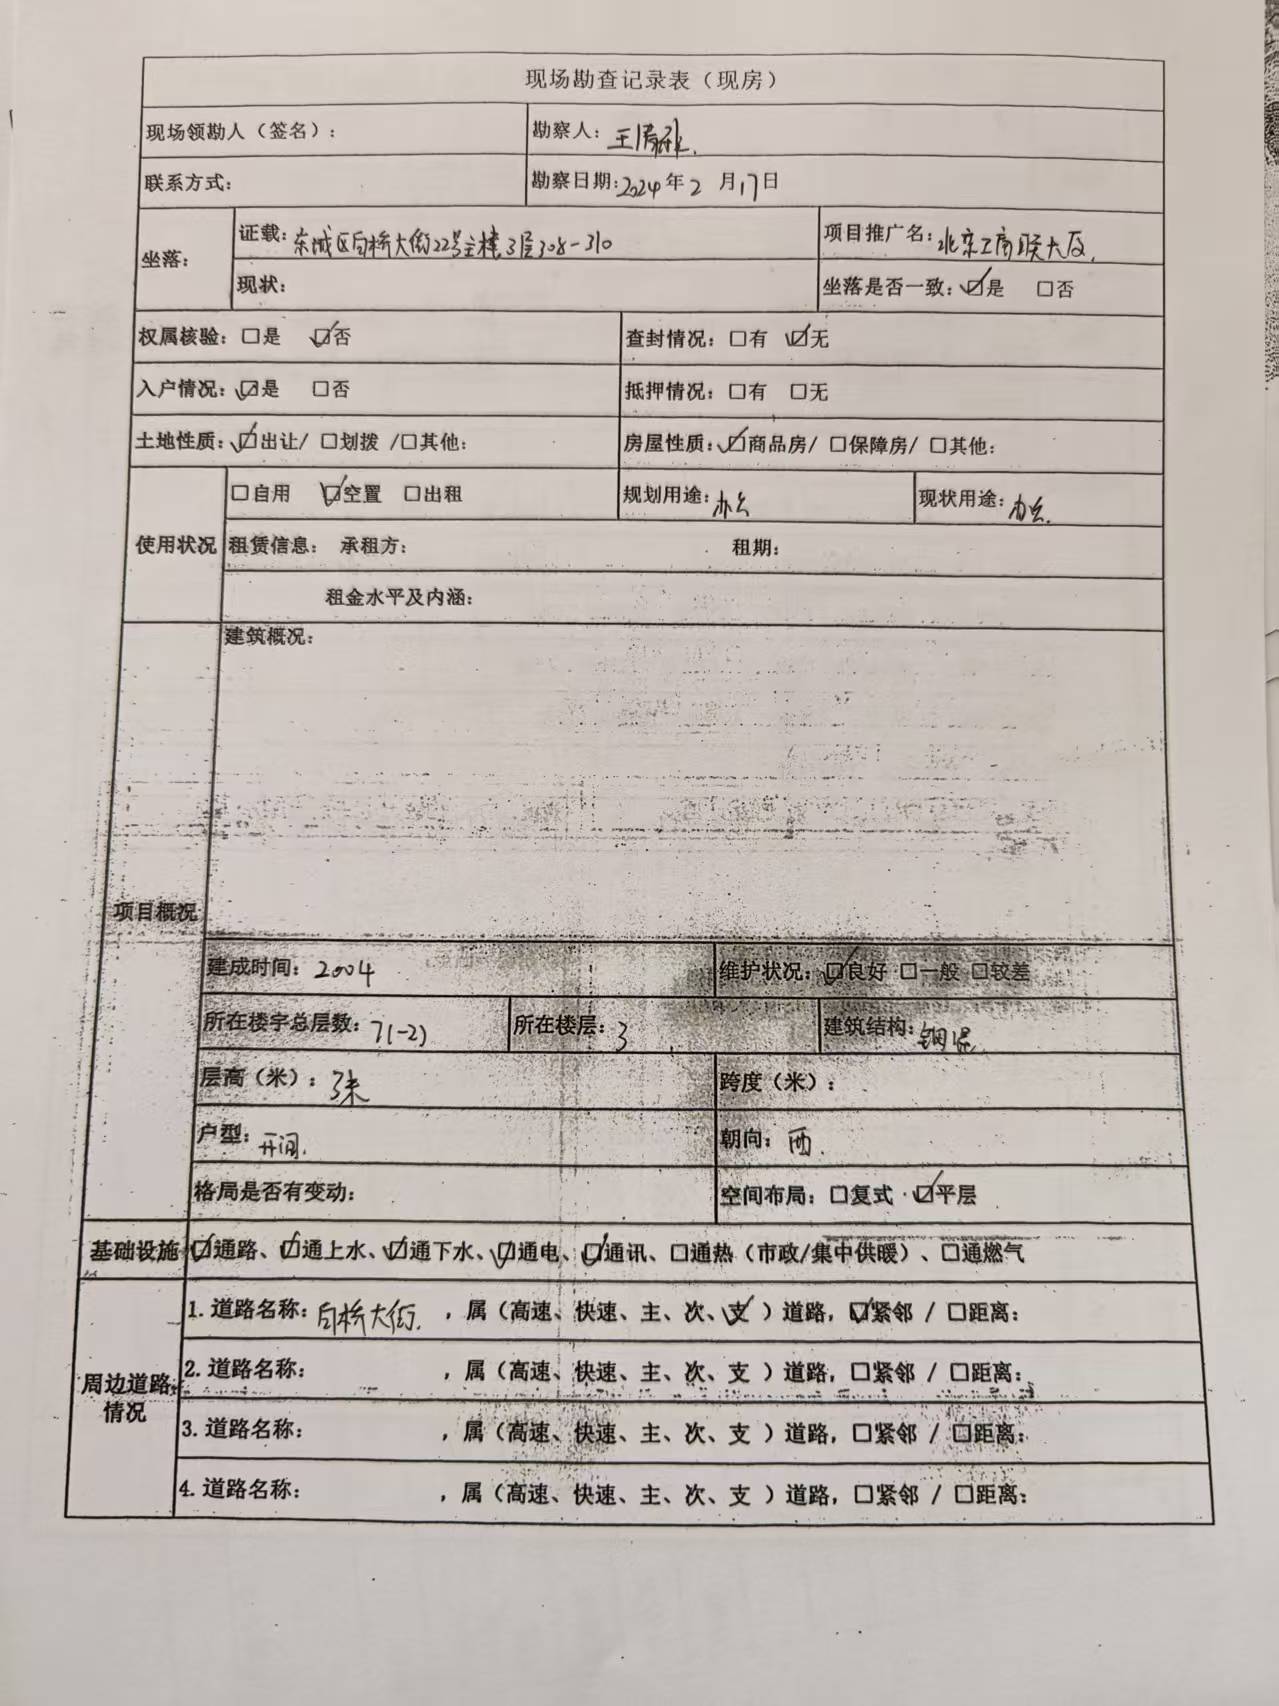 现场勘查记录表（现房）
现场领勘人（签名）： 勘察人：王
联系方式： 勘察日期：2024年2月17日
坐落： 证载：东城区白桥大街22号主楼3层308-310 项目推广名：北京工商联大厦.
现状： 坐落是否一致：☑是 □否
权属核验：□是 ☑否 查封情况：□有 ☑无
入户情况：☑是 □否 抵押情况：□有 □无
土地性质：☑出让/ □划拨 /□其他： 房屋性质：☑商品房/ □保障房/ □其他：
使用状况 □自用 ☑空置 □出租 规划用途：办公 现状用途：办公.
租赁信息： 承租方： 租期：
租金水平及内涵：
项目概况 建筑概况：
建成时间：2004 维护状况：☑良好 □一般 □较差
所在楼宇总层数：7(-2) 所在楼层：3 建筑结构：钢混
层高（米）：3米 跨度（米）：
户型：开间. 朝向：西.
格局是否有变动： 空间布局：□复式 ☑平层
基础设施 ☑通路、☑通上水、☑通下水、☑通电、☑通讯、□通热（市政/集中供暖）、□通燃气
周边道路情况 1. 道路名称：白桥大街. ，属（高速、快速、主、次、支✓）道路，☑紧邻 / □距离：
2. 道路名称： ，属（高速、快速、主、次、支 ）道路，□紧邻 / □距离：
3. 道路名称： ，属（高速、快速、主、次、支 ）道路，□紧邻 / □距离：
4. 道路名称： ，属（高速、快速、主、次、支 ）道路，□紧邻 / □距离：